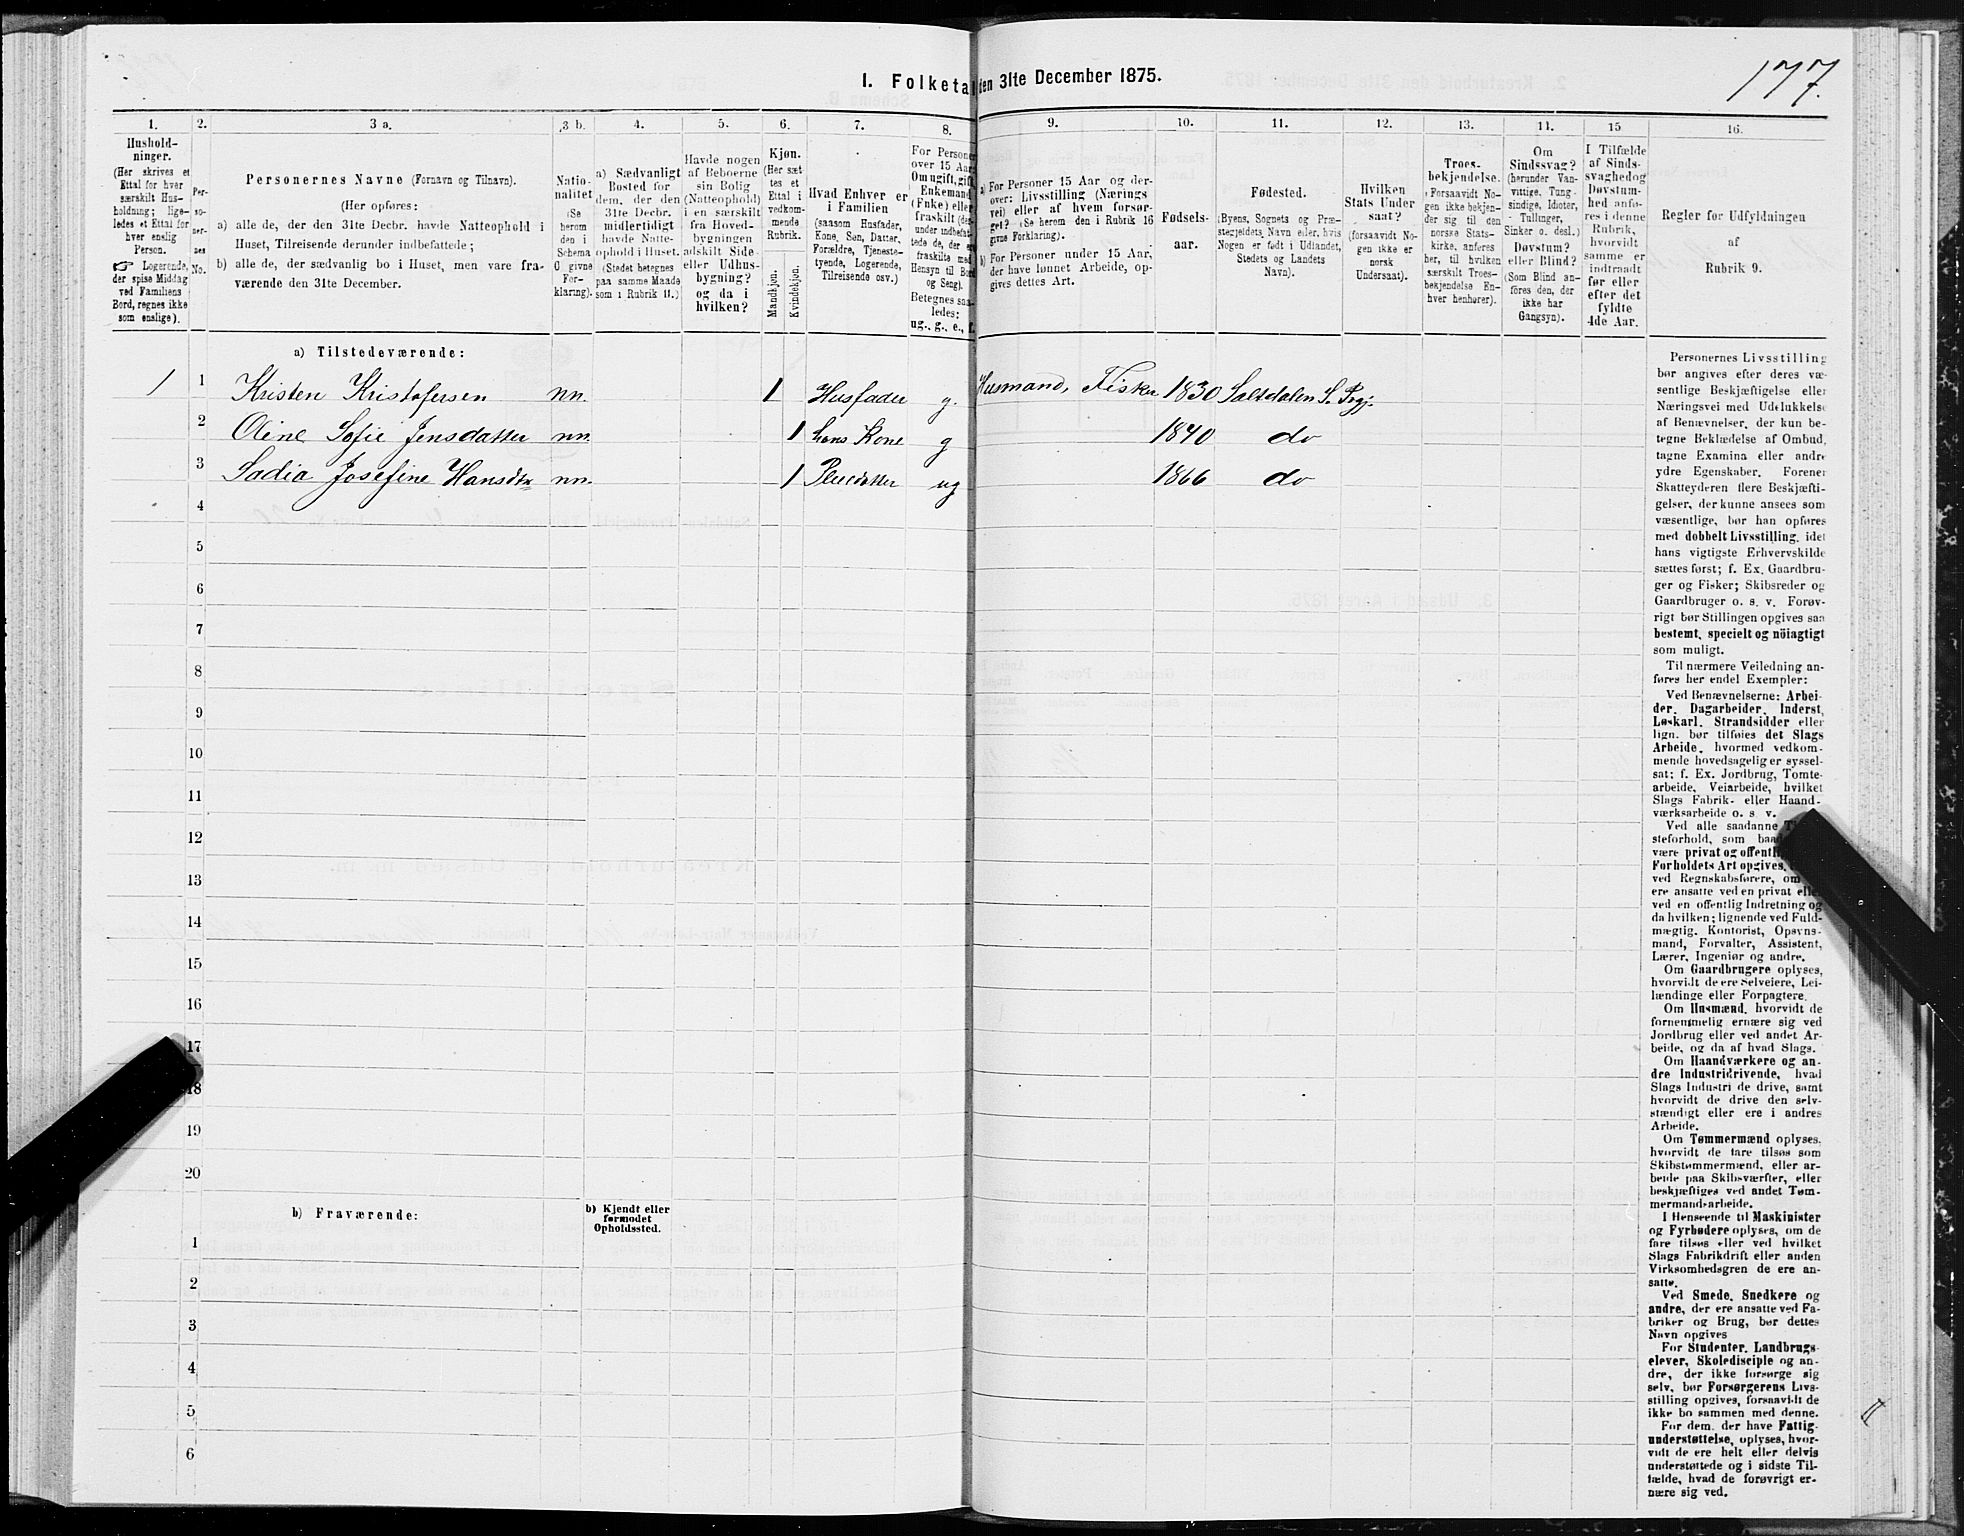 I. Folketal den 31te December 1875.
177.
1.
Hushold-
ninger.
(Her skrives et
Ettal for hver
særskilt Hus-
holdning; lige-
ledes et Ettal for
hver enslig
Person.
☞ Logerende,
der spise Middag
ved Familiens
Bord, regnes ikke
som enslige).
2.
Per-
so-
ner-
nes
No.
3 a.
Personernes Navne (Fornavn og Tilnavn).
(Her opføres:
a) alle de, der den 31te Decbr. havde Natteophold i
Huset, Tilreisende derunder indbefattede;
b) alle de, der sædvanlig bo i Huset, men vare fra-
værende den 31te December.
3 b.
Natio-
nalitet
(Se
herom
den i
Schema
O givne
For-
klaring).
4.
a) Sædvanligt
Bosted for
dem, der den
31te Decbr.
midlertidigt
havde Natte-
ophold i Huset.
(Stedet betegnes
paa samme Maade
som i Rubrik 11.)
5.
Havde nogen
af Beboerne
sin Bolig
(Natteophold)
i en særskilt
fra Hoved-
bygningen
adskilt Side-
eller Udhus-
bygning?
og da i
hvilken?
6.
Kjøn.
(Her sæt
tes et
Ettal i
vedkom-
mende
Rubrik.
Mandkjøn.
Kvindekjøn.
7.
Hvad Enhver er
i Familien
(saasom Husfader,
Kone, Søn, Datter,
Forældre, Tjeneste-
tyende, Logerende,
Tilreisende osv.)
8.
For Personer
over 15 Aar:
Om ugift, gift,
Enkemand
(Enke) eller
fraskilt (der-
under indbefat-
tede de, der er
fraskilte med
Hensyn til Bord
og Seng).
Betegnes saa-
ledes:
ug., g., e., f.
9.
a) For Personer 15 Aar og der-
over: Livsstilling (Nærings
vei) eller af hvem forsør-
get? (Se herom den i Rubrik 16
givne Forklaring).
b) For Personer under 15 Aar,
der have lønnet Arbeide, op-
gives dettes Art.
10.
Fødsels-
aar.
11.
Fødested.
(Byens, Sognets og Præ-
stegjeldets Navn eller, hvis
Nogen er født i Udlandet,
Stedets og Landets
Navn).
12.
Hvilken
Stats Under
saat?
(forsaavidt No-
gen ikke er
norsk
Undersaat).
13.
Troes-
bekjendelse.
(Forsaavidt No-
gen ikke bekjen-
der sig til den
norske Stats-
kirke, anføres
her, til hvilken
særskilt Troes-
bekjendelse En-
hver henhører).
14.
Om
Sindssvag?
(herunder Van-
vittige, Tung-
sindige, Idioter,
Tullinger,
Sinker o. desl.)
Døvstum?
eller Blind?
(Som Blind an-
føres den, der
ikke har
Gangsyn).
15
I Tilfælde
af Sinds-
svaghed og
Døvstum-
hed anfø-
res i denne
Rubrik,
hvorvidt
samme er
indtraadt
før eller
efter det
fyldte
4de Aar.
16.
Regler for Udfyldningen
af
Rubrik 9.
a) Tilstedeværende:
1 1 Kristen Kristofersen nn. 1 Husfader g. Husmand, Fisker 1830 Saltdalen S. Prgj.
2 Oline Sofie Jensdatter nn. 1 hans Kone g 1840 do
3 Sadia Josefine Hansdtr nn. 1 Pleiedatter ug 1866 do
4
5
6
7
8
9
10
11
12
13
14
15
16
17
18
19
20
b) Fraværende:
b) Kjendt eller
formodet
Opholdssted.
1
2
3
4
5
6
Personernes Livsstilling
bør angives efter deres væ-
sentlige Beskjæftigelse eller
Næringsvei med Udelukkelse
af Benævnelser, der kun be-
tegne Beklædelse af Ombud,
tagne Examina eller andre
ydre Egenskaber. Forener
Skatteyderen flere Beskjæfti-
gelser, der kunne ansees som
væsentlige, bør han opføres
med dobbelt Livsstilling, idet
hans vigtigste Erhvervskilde
sættes først; f. Ex. Gaardbru-
ger og Fisker; Skibsreder og
Gaardbruger o. s. v. Forøv-
rigt bør Stillingen opgives saa
bestemt, specielt og nöiagtigt
som muligt.
Til nærmere Veiledning an-
føres her endel Exempler:
Ved Benævnelserne: Arbei-
der, Dagarbeider, Inderst,
Løskarl, Strandsidder eller
lign. bør tilføies det Slags
Arbeide, hvormed vedkom-
mende hovedsagelig er syssel-
sat; f. Ex. Jordbrug, Tomte-
arbeide, Veiarbeide, hvilket
Slags Fabrik- eller Haand-
værksarbeide o. s. v.
Ved alle saadanne
steforhold, som
være privat og
Forholdets Art opgives,
ved Regnskabsførere, om
ere ansatte ved en privat
ved en offentlig Indretning og
da hvilken; lignende ved Fuld-
mægtig, Kontorist, Opsyns-
mand, Forvalter, Assistent,
Lærer, Ingeniør og andre.
Om Gaardbrugere oplyses,
hvorvidt de ere Selveiere, Lei-
lændinge eller Forpagtere.
Om Husmænd, hvorvidt de
fornemmelig ernære sig ved
Jordbrug eller ved andet Ar-
beide, og da af hvad Slags.
Om Haandværkere og an-
dre Industridrivende, hvad
Slags Industri de drive, samt
hvorvidt de drive den selv-
stændigt eller ere i andres
Arbeide.
Om Tømmermænd oplyses,
hvorvidt de fare tilsøs som
Skibstømmermænd, eller ar-
beide paa Skibsværfter, eller
beskjæftiges ved andet Tøm-
mermandsarbeide.
I Henseende til Maskinister
og Fyrbødere oplyses, om de
fare tilsøs eller ved hvilket
Slags Fabrikdrift eller anden
Virksomhedsgren de ere an-
satte.
Ved Smede, Snedkere og
andre, der ere ansatte ved Fa-
briker og Brug, bør dettes
Navn opgives
For Studenter, Landbrugs-
elever, Skoledisciple og an-
dre, der ikke forsørge sig
selv, bør Forsørgerens Livs-
stilling opgives, forsaavidt de
ikke bo sammen med denne.
For dem, der have Fattig-
understøttelse, oplyses, hvor-
vidt de ere helt eller delvis
understøttede og i sidste Til-
fælde, hvad de forøvrigt er-
nære sig ved.